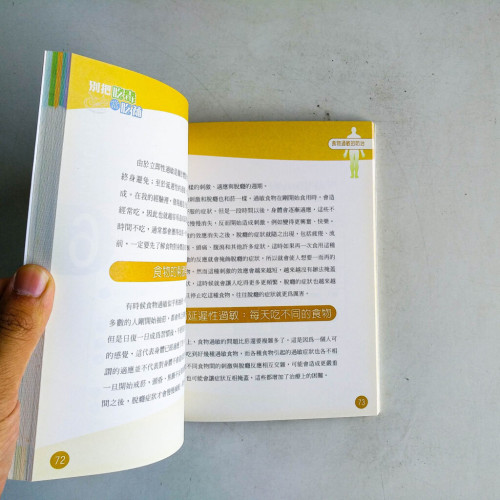 別把吃苦
當吃補
由於立即性過敏
終身避免；至於延遲性
成。在我的經驗裡，
經常吃，因此也就
時間不吃，通常都會
前，一定要先了解食
食物的
有時候食物過敏
多數的人剛開始抽菸，都
但是日復一日成為習慣
的感覺，這代表身體已經
謂的適應並不代表對身體
一旦開始戒菸，頭昏、
間之後，脫癮症狀才會
72
食物過敏面面觀
樣的刺激、適應與脫癮的週期。
刺激和脫癮也和菸一樣，過敏食物在剛開始食用時，會造
的症狀，但是一段時間以後，身體會逐漸適應，這些不
慢慢消失，反而開始造成刺激，例如變得更興奮、快樂。
的效應消失之後，脫癮的症狀就隨之出現，包括疲憊、流
、頭痛、腹瀉和其他許多症狀。這時如果再一次食用這種
的反應就會掩飾脫癮症狀，所以就會使人想要一而再的
。然而這種刺激的效應會越來越短，越來越沒有辦法掩蓋
時候就會讓人吃得更多更頻繁，脫癮的症狀也越來越
停止吃這種食物，往往脫癮的症狀就更為厲害。
延遲性過敏：每天吃不同的食物
上，食物過敏的問題比菸還要複雜多了，這是因為一個人可
吃到好幾種過敏食物，而各種食物引起的過敏症狀也各不相
不同食物間的刺激與脫癮反應相互交疊，可能會造成更嚴重
也可能會讓症狀互相掩蓋，這些都增加了治療上的困難。
73